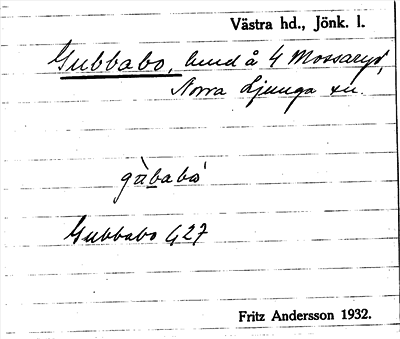 Västra hd., Jönk. l.
Gubbabo, lund å 4 Mossaryd,
Norra Ljunga sn.
Gubbabo G27
Fritz Andersson 1932.